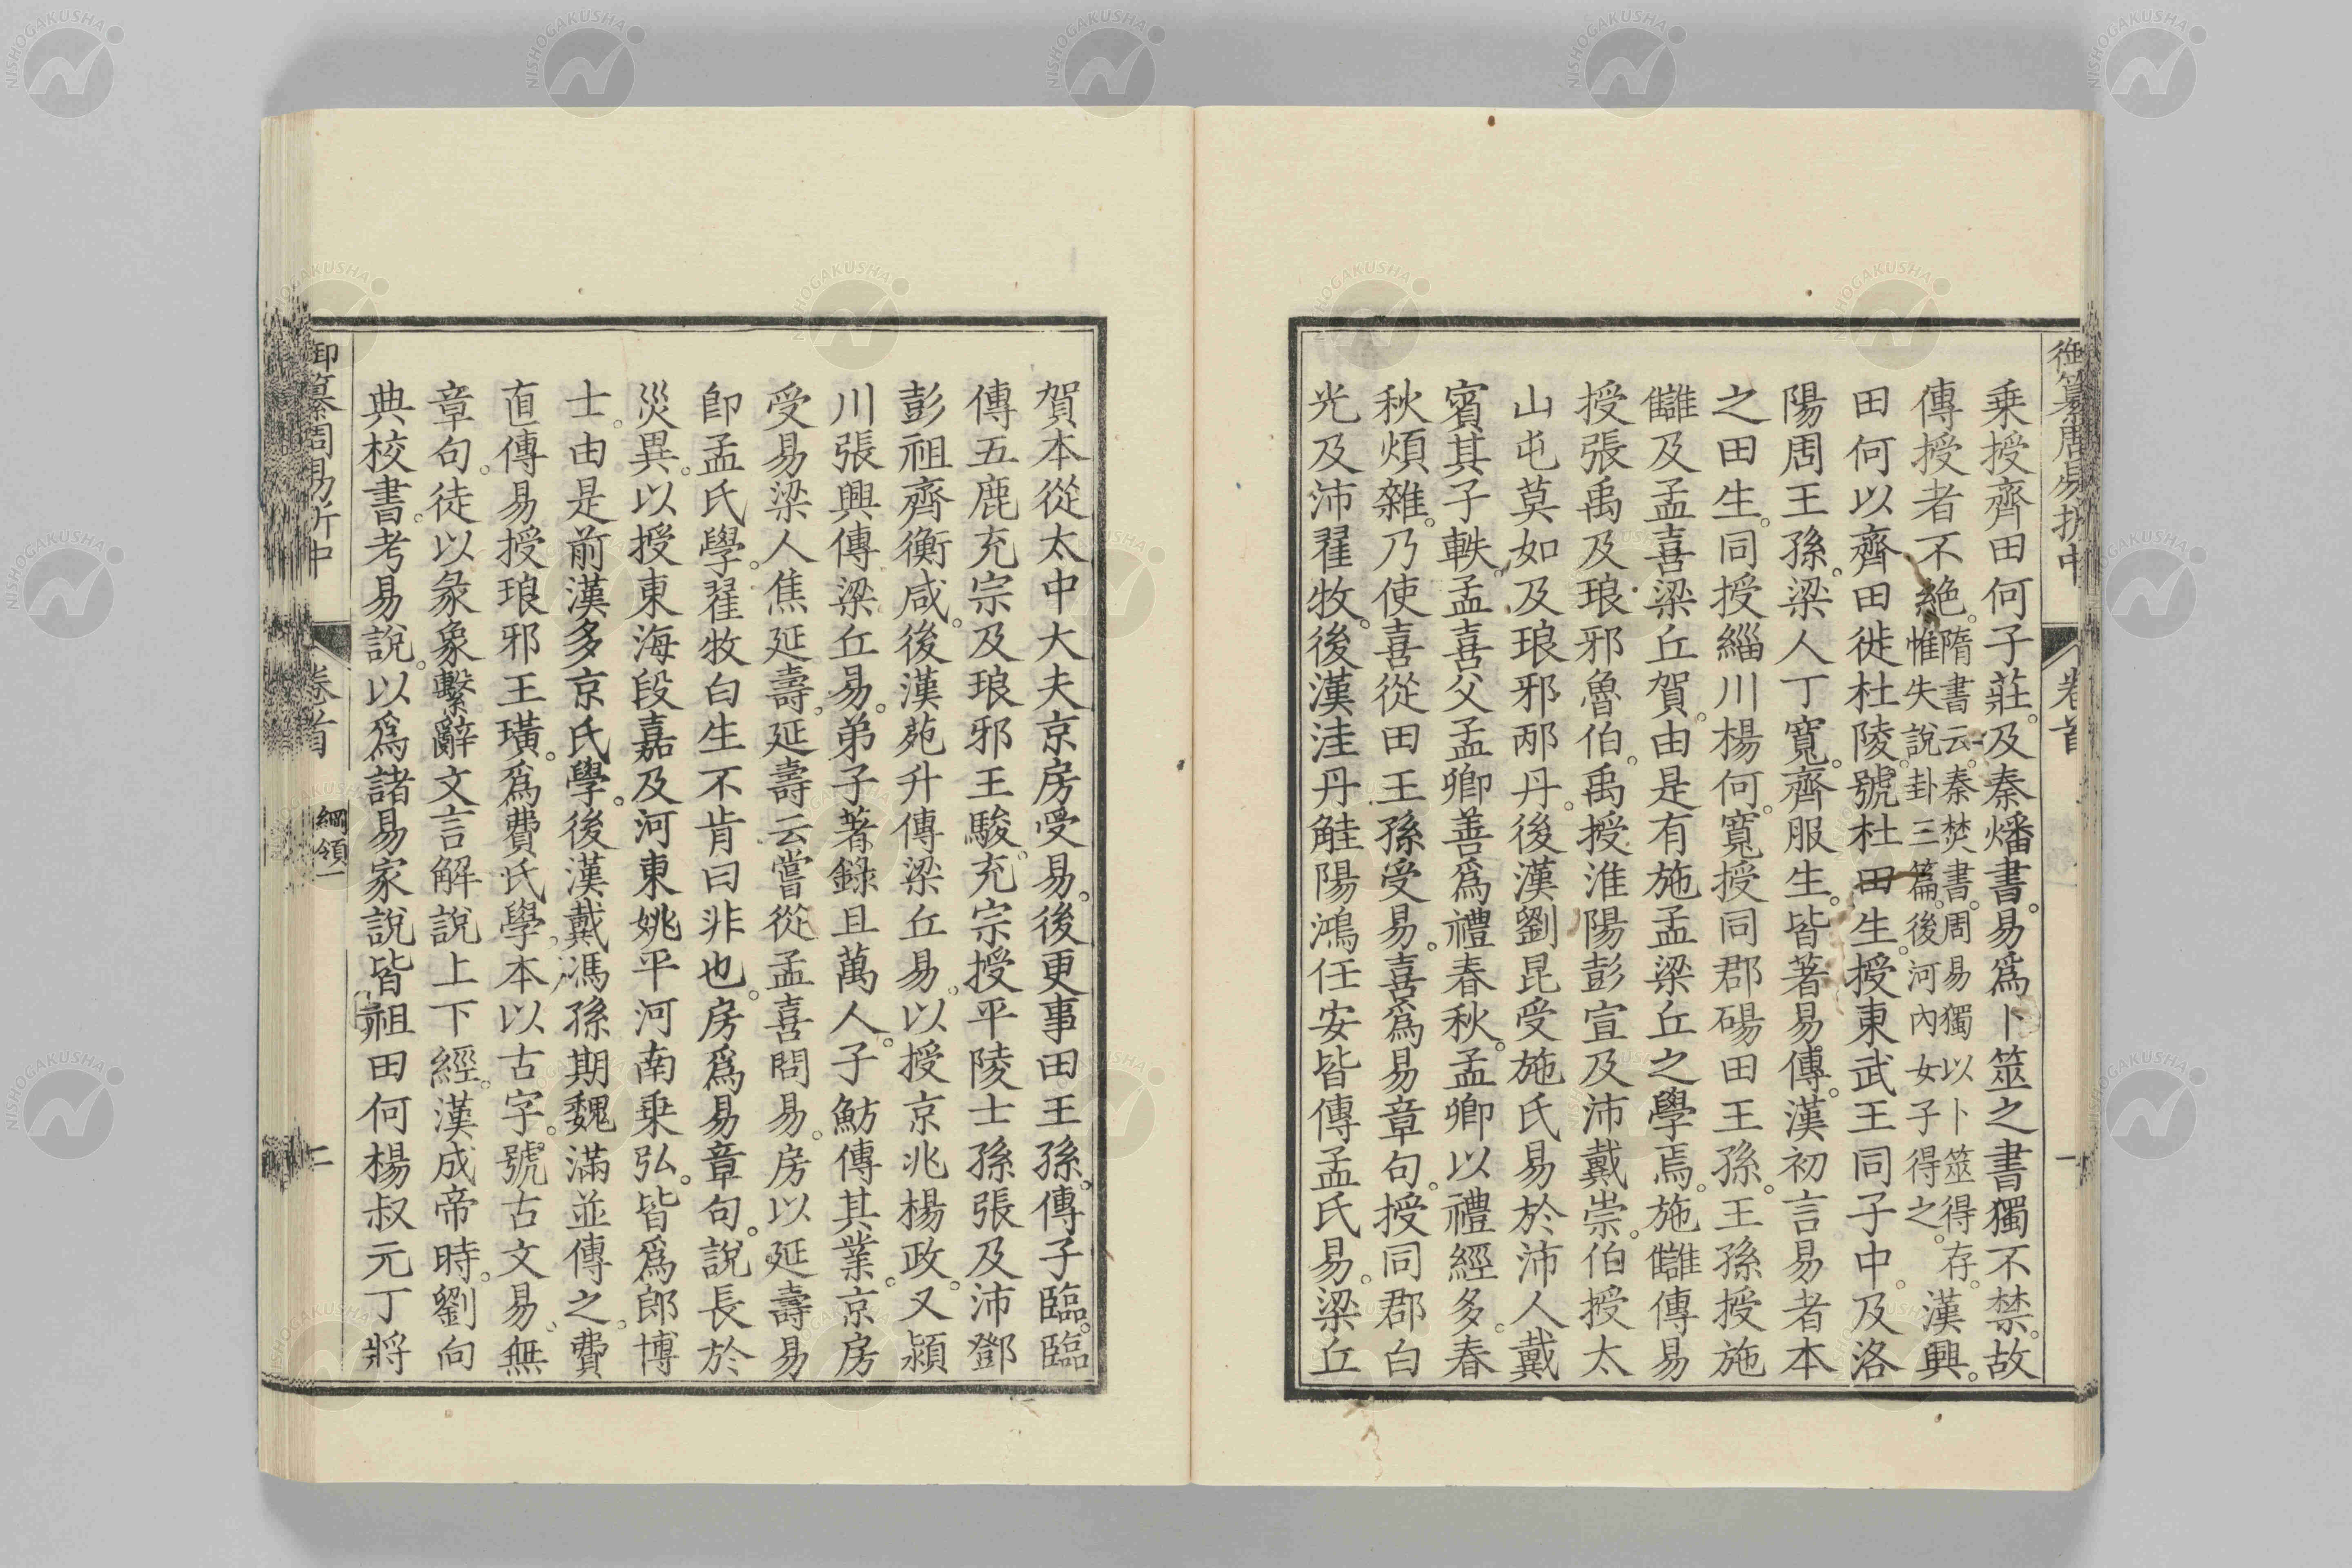 御纂周易折中 卷首 一
乗授齊田何子莊。及秦燔書。易爲卜筮之書獨不禁。故
傳授者不絶。隋書云。秦焚書。周易獨以卜筮得存。惟失說卦三篇。後河內女子得之。漢興。
田何以齊田徙杜陵。號杜田生。授東武王同子中。及洛
陽周王孫。梁人丁寬。齊服生。皆著易傳。漢初言易者本
之田生。同授緇川楊何。寬授同郡碭田王孫。王孫授施
讎及孟喜梁丘賀。由是有施孟梁丘之學焉。施讎傳易
授張禹及琅邪魯伯。禹授淮陽彭宣及沛戴崇。伯授太
山屯莫如及琅邪邴丹。後漢劉昆受施氏易於沛人戴
賓其子軼。孟喜父孟卿善爲禮春秋。孟卿以禮經多。春
秋煩雜。乃使喜從田王孫受易。喜爲易章句。授同郡白
光及沛翟牧。後漢洼丹觟陽鴻任安皆傳孟氏易。梁丘
賀本從太中大夫京房受易。後更事田王孫。傳子臨。臨
傳五鹿充宗及琅邪王駿。充宗授平陵士孫張及沛鄧
彭祖齊衡咸。後漢范升傳梁丘易。以授京兆楊政。又潁
川張興傳梁丘易。弟子著錄且萬人。子魴傳其業。京房
受易梁人焦延壽。延壽云嘗從孟喜問易。房以延壽易
卽孟氏學。翟牧白生不肯曰非也。房爲易章句。說長於
災異。以授東海段嘉及河東姚平河南乗弘。皆爲郎博
士。由是前漢多京氏學。後漢戴馮孫期魏滿並傳之。費
直傳易授琅邪王璜。爲費氏學。本以古字。號古文易。無
章句。徒以彖象繫辭文言解說上下經。漢成帝時。劉向
典校書。考易說。以爲諸易家說皆祖田何楊叔元丁將
御纂周易折中 卷首 綱領一 二